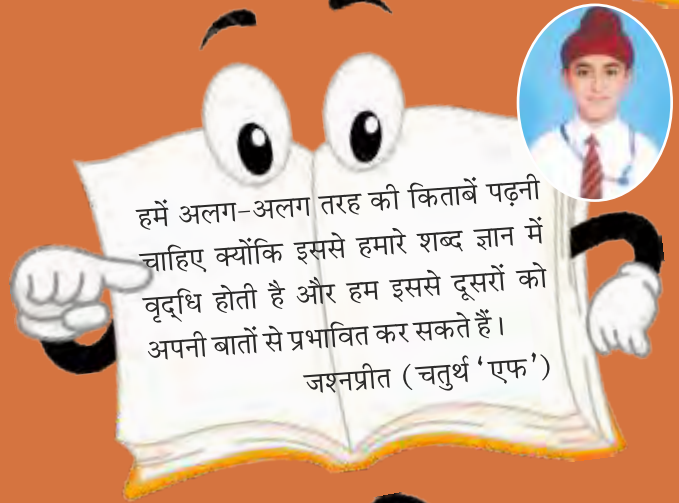 हमें अलग-अलग तरह की किताबें पढ़नी
चाहिए क्योंकि इससे हमारे शब्द ज्ञान में
वृद्धि होती है और हम इससे दूसरों को
अपनी बातों से प्रभावित कर सकते हैं।
जश्नप्रीत (चतुर्थ 'एफ')